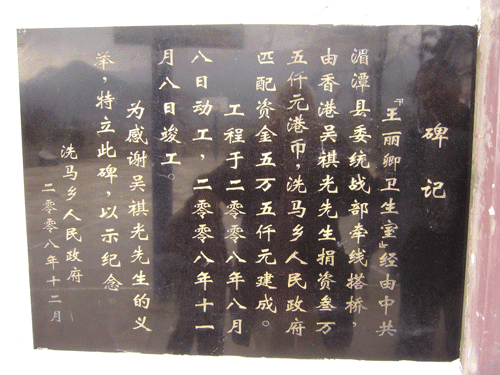 碑记
『王丽卿卫生室』经由中共
湄潭县委统战部牵线搭桥，
由香港吴祺光先生捐资叁万
五仟元港币，洗马乡人民政府
匹配资金五万五仟元建成。
工程于二零零八年八月
八日动工，二零零八年十一
月八日竣工。
为感谢吴祺光先生的义
举，特立此碑，以示纪念
洗马乡人民政府
二零零八年十二月